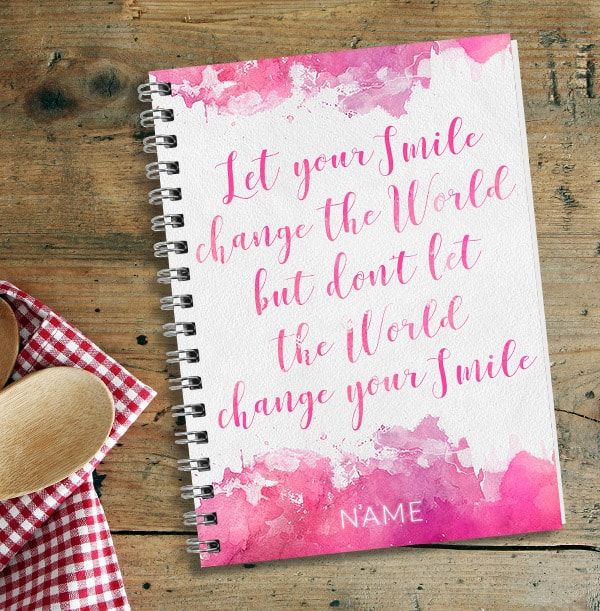 Let your Smile
change the World
but dont let
the World
change your Smile
NAME